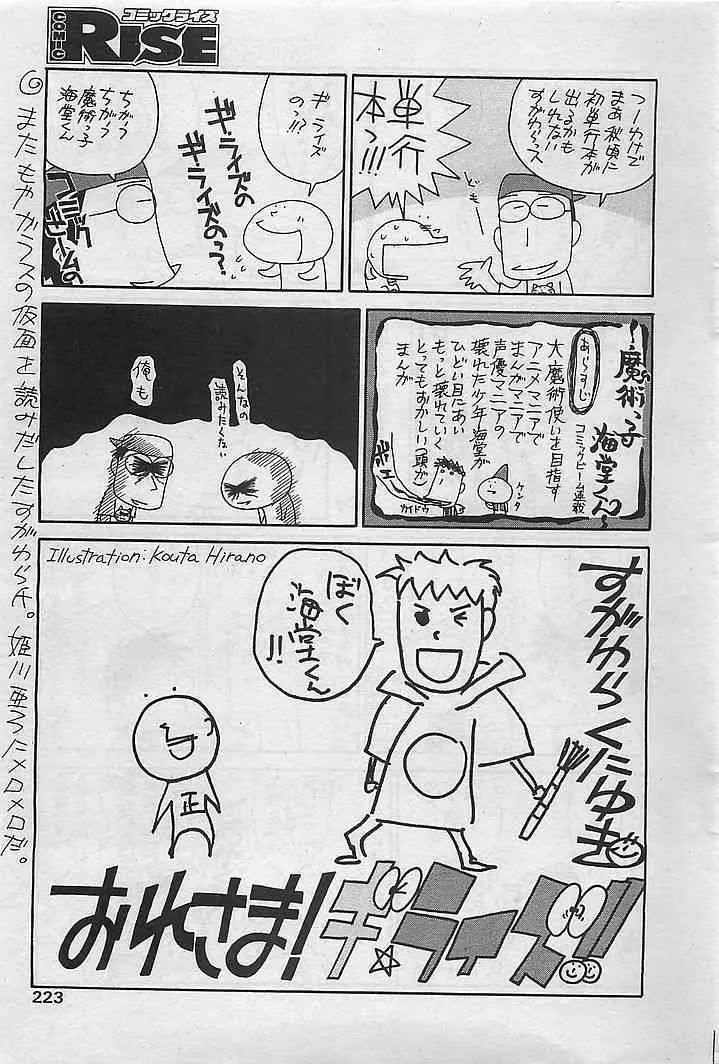 コミックライズ
COMIC
RiSE
つーわけで
まあ秋頃に
初単行本が
出るかも
しれない
すがわらっス
単行
本っ!!!
どもー
ギライズ
のっ!?
ギライズの
ギライズのっ?
ちがう
ちがう
魔術っ子
海堂くん
コミック
ビームの
〜魔術っ子
海堂くん〜
コミックビーム連載
あらすじ
大魔術使いを目指す
アニメマニアで
まんがマニアで
声優マニアの
壊れた少年海堂が
ひどい目にあい
もっと壊れていく
とってもおかしい(頭が)
まんが
ケンタ
カイドウ
そんなの
読みたくない
俺も
Illustration: Kouta Hirano
すがわらくにゆき
ぼく
海堂くん
!!
正
おれさま!
ギライズ!!
またもやガラスの仮面を読みだしたすがわら氏。姫川亜弓にメロメロだ。
223